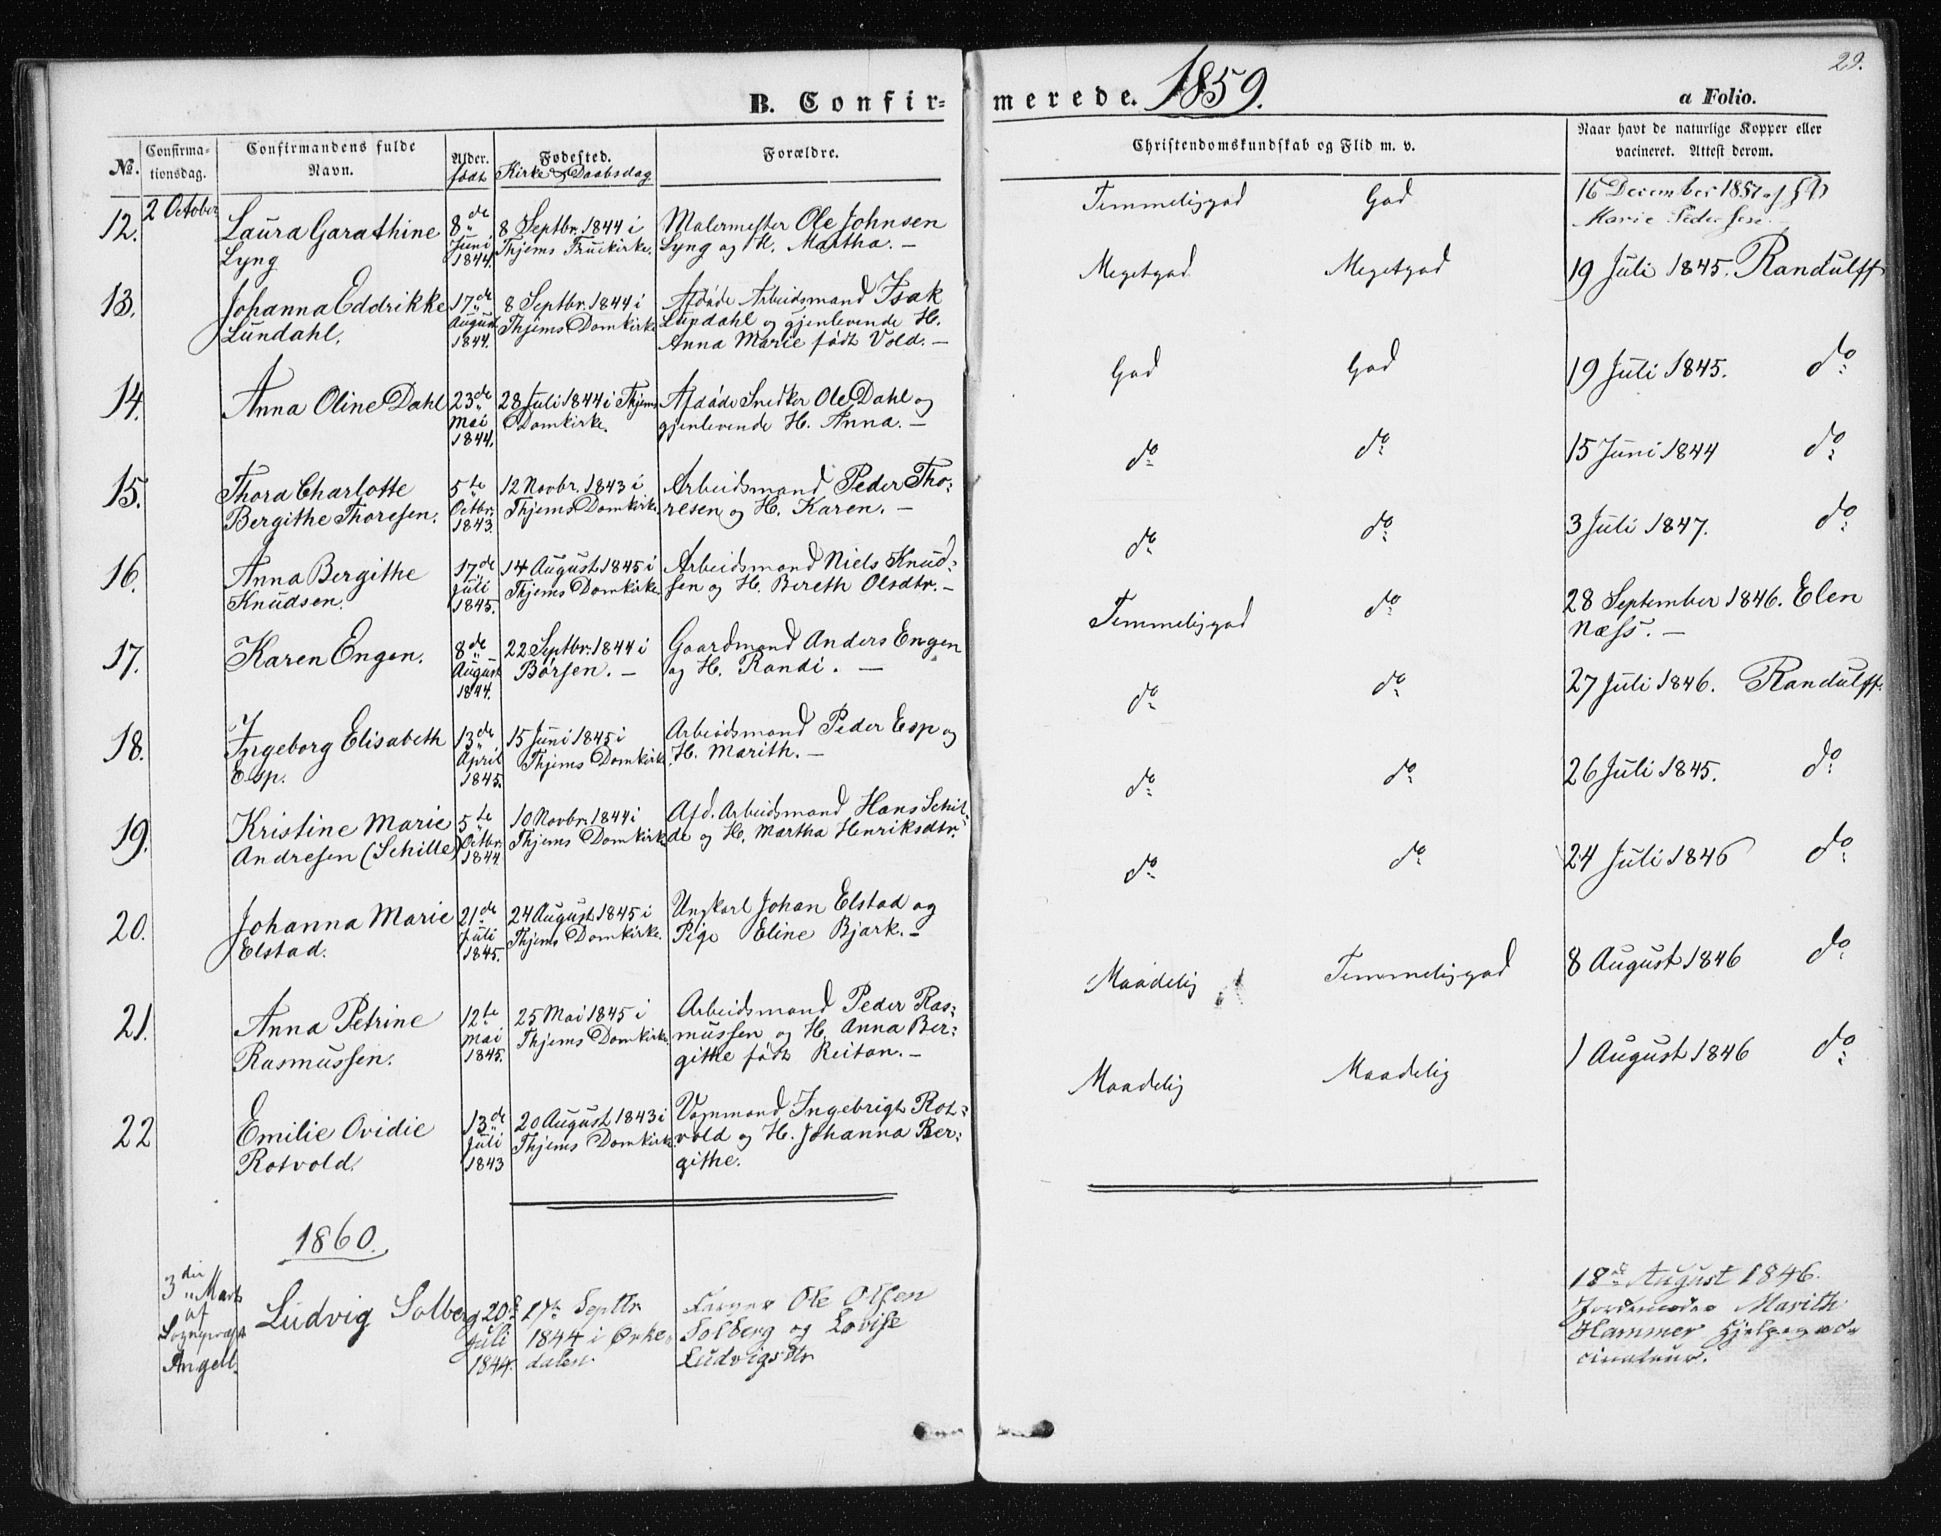 29.
B. Confirmerede. 1859.
a Folio.
No.
Confirmationsdag.
Confirmandens fulde Navn.
Alder. født
Fødested. Kirke & Daabsdag
Forældre.
Christendomskundskab og Flid m. v.
Naar havt de naturlige Kopper eller vacineret. Attest derom.
12.
2 October
Laura Garathine
Lyng
8de
Juni
1844.
8 Septbr. 1844 i
Thjems Fruekirke.
Malermester Ole Johnsen
Lyng og H. Martha. —
Temmeliggod
God
16 December 1857 af
Marie Pedersen
13.
Johanna Eddrikke
Lundahl.
17de
August
1844.
8 Septbr. 1844 i
Thjems Domkirke
Afdøde Arbeidsmand Isak
Lundahl og gjenlevende H.
Anna Marie født Vold. —
Megetgod
Megetgod
19 Juli 1845. Randulff
14.
Anna Oline Dahl
23de
Mai
1844.
28 Juli 1844 i Thjems
Domkirke.
Afdøde Snedker Ole Dahl og
gjenlevende H. Anna. —
God
God
19 Juli 1845. do
15.
Thora Charlotte
Bergithe Thoresen.
5te
Octbr.
1843.
12 Novbr. 1843 i
Thjems Domkirke
Arbeidsmand Peder Tho-
resen og H. Karen. —
do
do
15 Juni 1844 do
16.
Anna Bergithe
Knudsen.
17de
Juli
1845.
14 August 1845 i
Thjems Domkirke
Arbeidsmand Niels Knud-
sen og H. Bereth Olsdtr. —
do
do
3 Juli 1847. do
17.
Karen Engen.
8de
August
1844.
22 Septbr. 1844 i
Børsen. —
Gaardmand Anders Engen
og H. Randi. —
Temmeliggod
do
28 September 1846. Elen
Næss. —
18.
Ingeborg Elisabeth
Esp.
13de
April
1845.
15 Juni 1845 i
Thjems Domkirke
Arbeidsmand Peder Esp og
H. Marith. —
do
do
27 Juli 1846. Randulff.
19.
Kristine Marie
Andresen (Schille)
5te
Octbr.
1844.
10 Novbr. 1844 i
Thjems Domkirke
Afd. Arbeidsmand Hans Schil-
de og H. Martha Henriksdtr.
do
do
26 Juli 1845. do
20.
Johanna Marie
Elstad.
21de
Juli
1845.
24 August 1845 i
Thjems Domkirke.
Ungkarl Johan Elstad og
Pige Eline Bjark. —
do
do
24 Juli 1846 do
21.
Anna Petrine
Rasmussen.
12te
Mai
1845.
25 Mai 1845 i
Thjems Domkirke
Arbeidsmand Peder Ras-
mussen og H. Anna Ber-
githe født Reitan. —
Maadelig
Temmeliggod
8 August 1846 do
22
Emilie Ovidie
Rotvold.
13de
Juli
1843
20 August 1843 i
Thjems Domkirke
Vognmand Ingebrigt Rot-
vold og H. Johanna Ber-
githe.
Maadelig
Maadelig
1 August 1846 do
1860.
3die Marts
af
Sogneprest
Angell.
Ludvig Solberg
20de
Juli
1844.
17de Septbr
1844 i Orke-
dalen.
Ole Olsen
Solberg og Lovise
Ludvigsdtr
18de August 1846.
Jordemoder Marith
Hammer Hjelpevac-
cinateur.